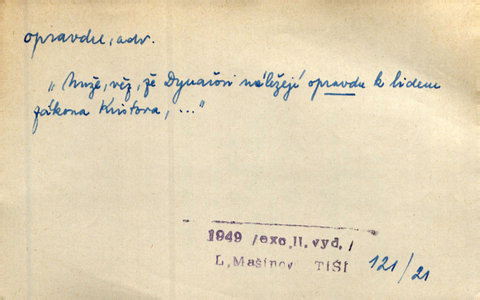 opravdu, adv.
„Nuže, věz, že Dynaioři náležejí opravdu k lidem
zákona Kristova, ..."
1949 /exc.II.vyd./
L.Mašínov TIŠÍ
121/21